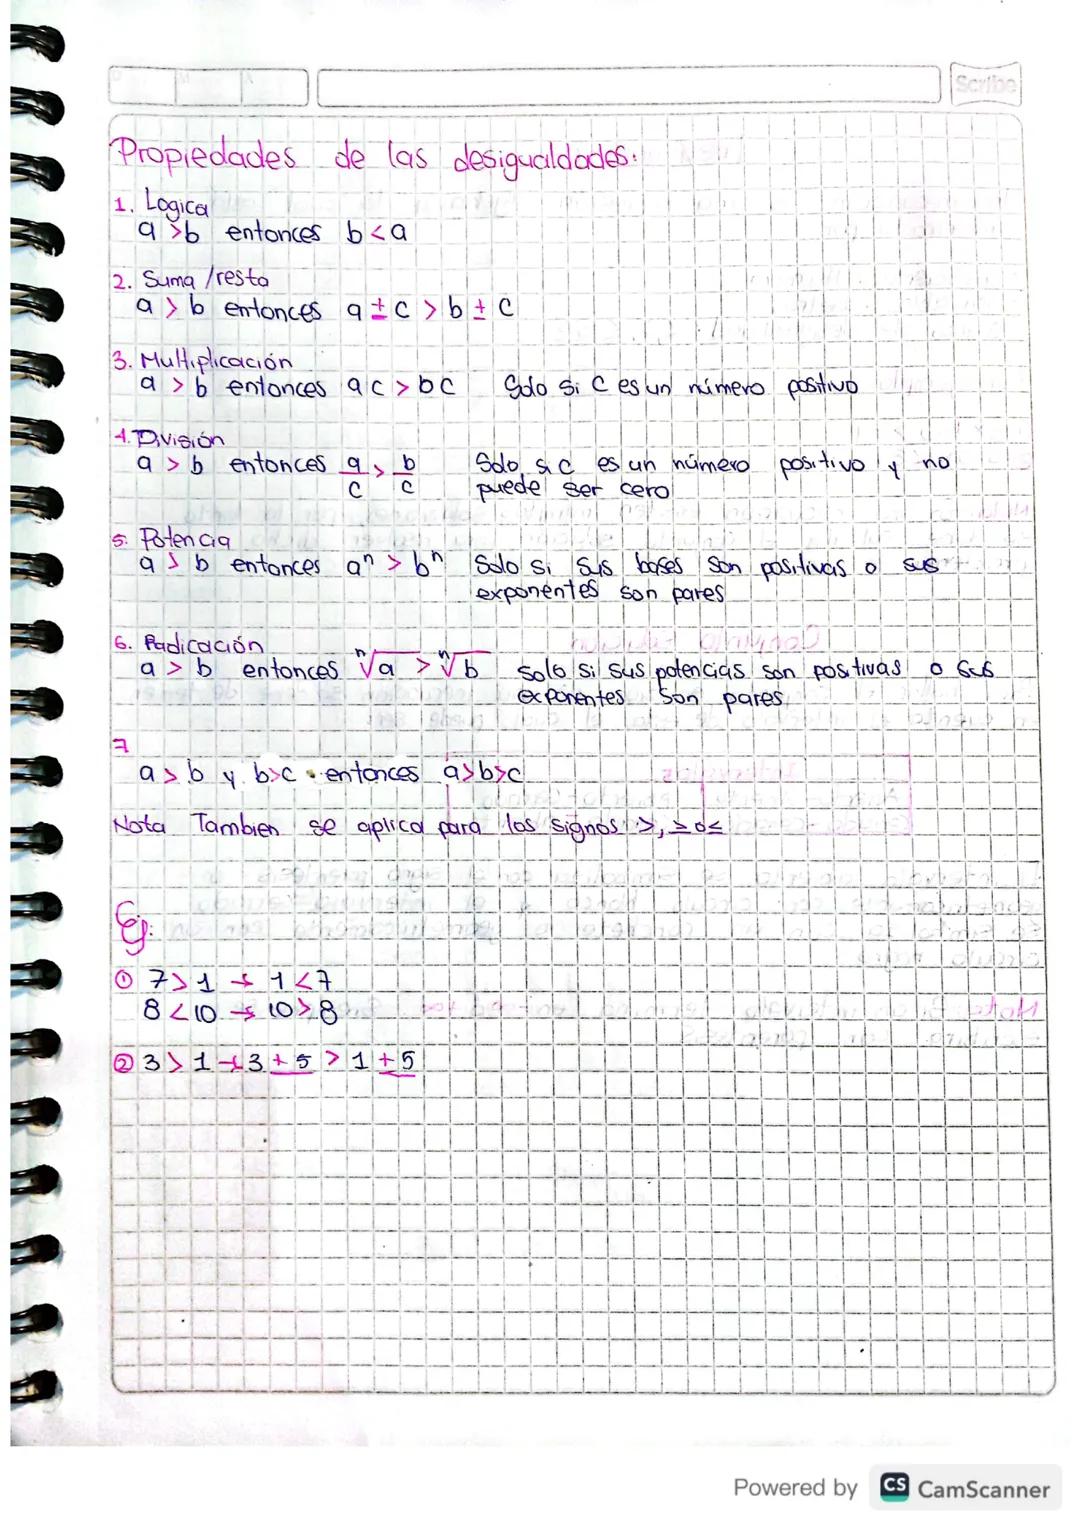 D M A
Scribe
Propiedades de las desigualdades.
1. Logica
a > b entonces b < a
2. Suma / resta
a > b entonces a ± c > b ± c
3. Multiplicación
a > b entonces ac > bc Solo si C es un número positivo
4. División
a > b entonces a/c > b/c Solo si c es un número positivo y no
puede ser cero
5. Potencia
a > b entonces aⁿ > bⁿ Solo si sus bases son positivas o sus
exponentes son pares
6. Radicación
a > b entonces ⁿ√a > ⁿ√b solo si sus potencias son positivas o sus
exponentes son pares
7
a > b y b>c entonces a>b>c
Nota Tambien se aplica para los signos >, ≥ o ≤
Ej:
① 7 > 1 → 1 < 7
8 < 10 → 10 > 8
② 3 > 1 → 3 + 5 > 1 + 5
Powered by CS CamScanner